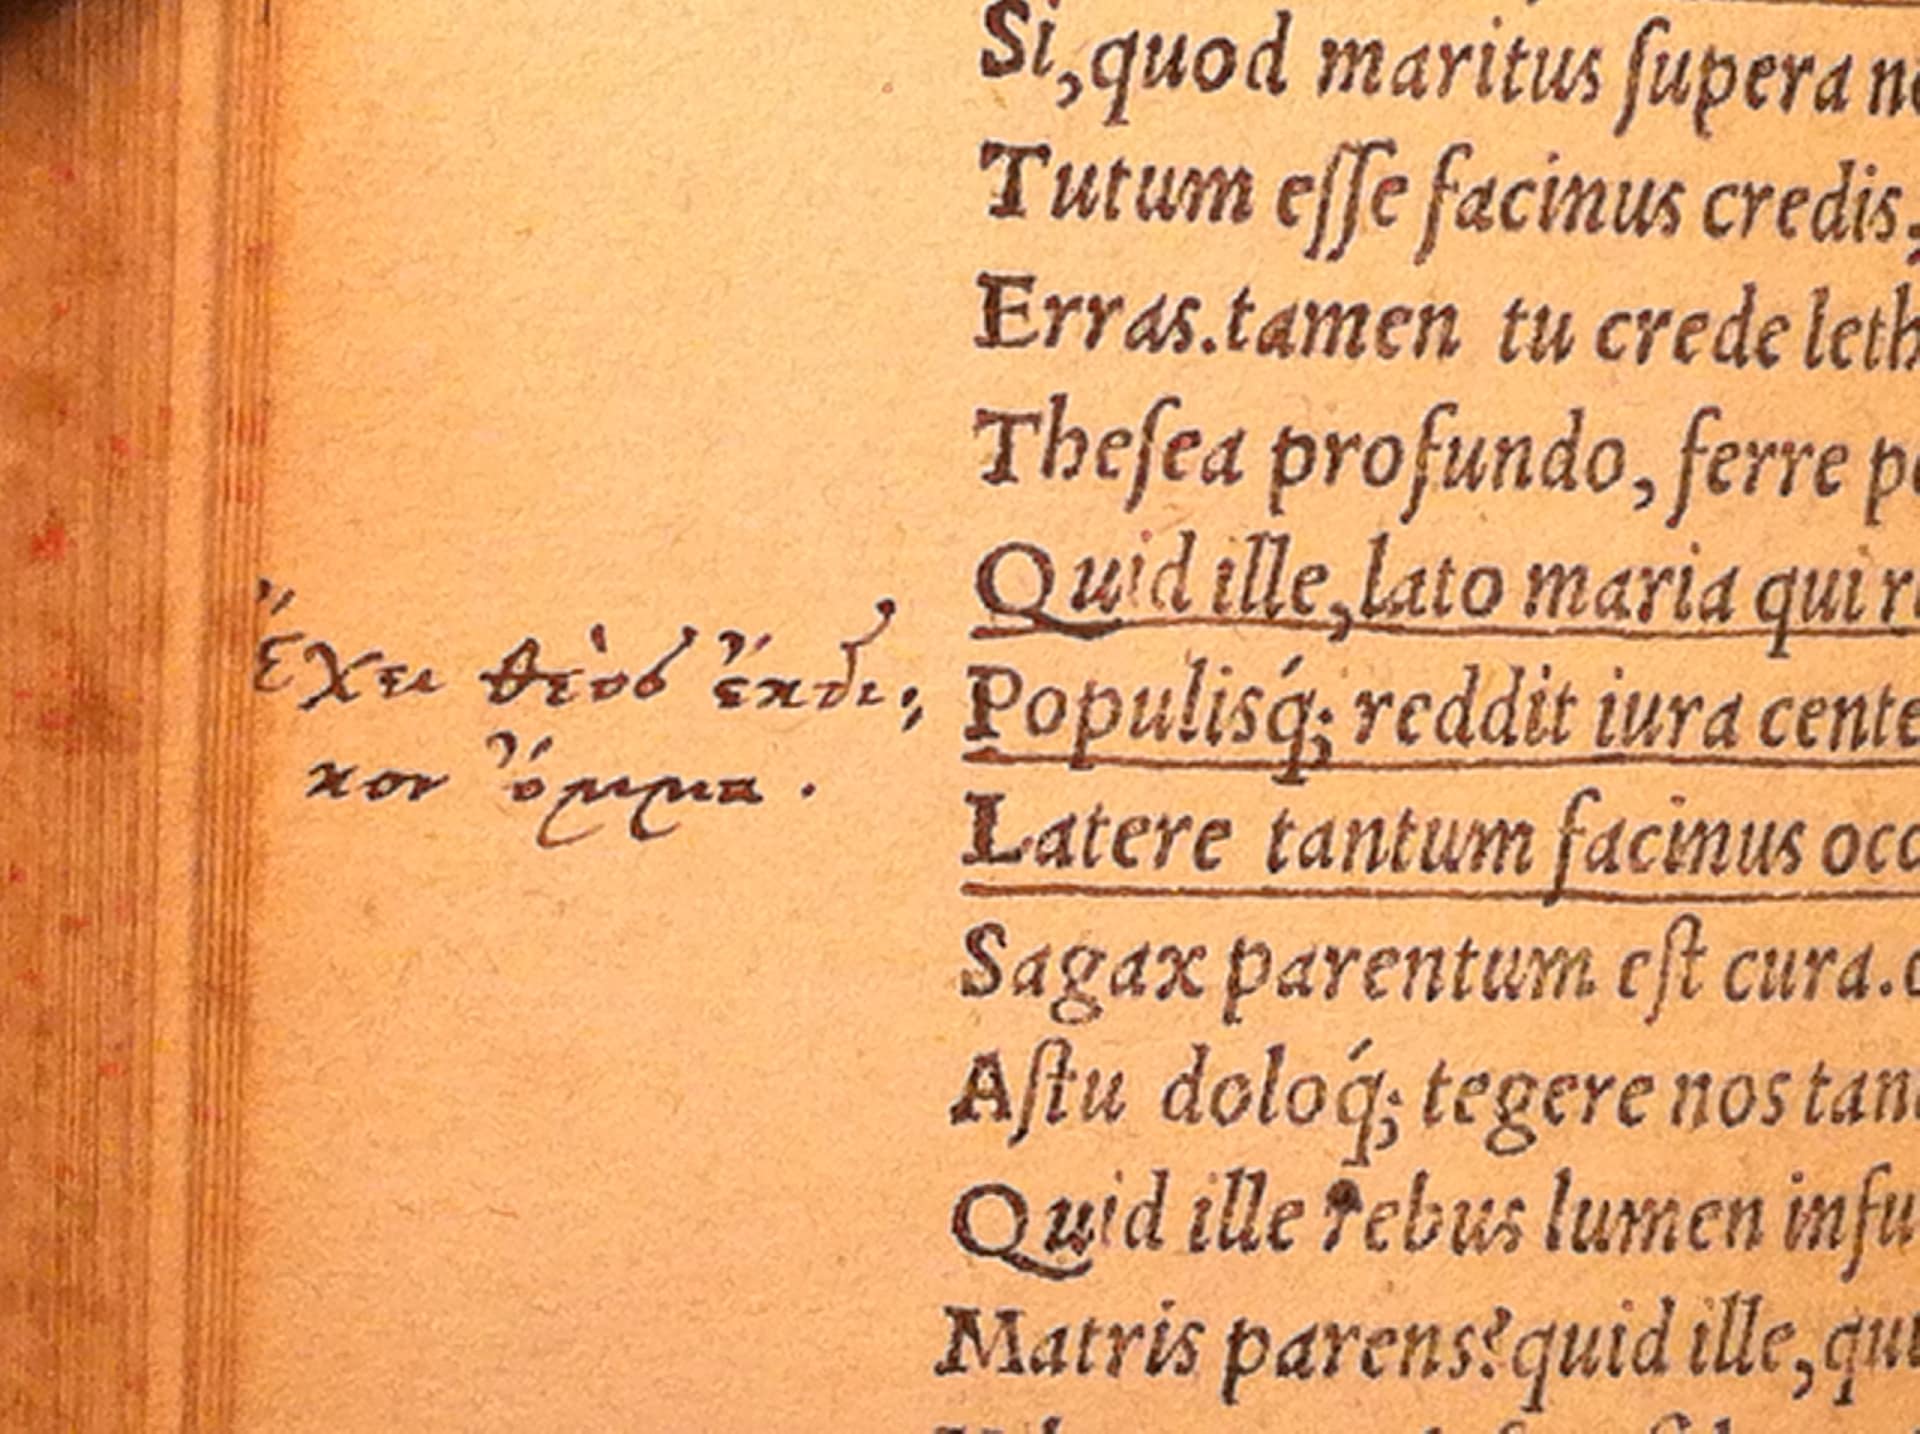 Si, quod maritus ſupera
Tutum eſſe facinus credis,
Erras. tamen tu crede leth
Theſea profundo, ferre
Quid ille, lato maria qui
Ἔχει θεὸς ἔκδι,
Populisq́; reddit iura cente
κον ὄμμα.
Latere tantum facinus occ
Sagax parentum eſt cura.
Aſtu doloq́; tegere nos tan
Quid ille rebus lumen infu
Matris parens? quid ille, qui